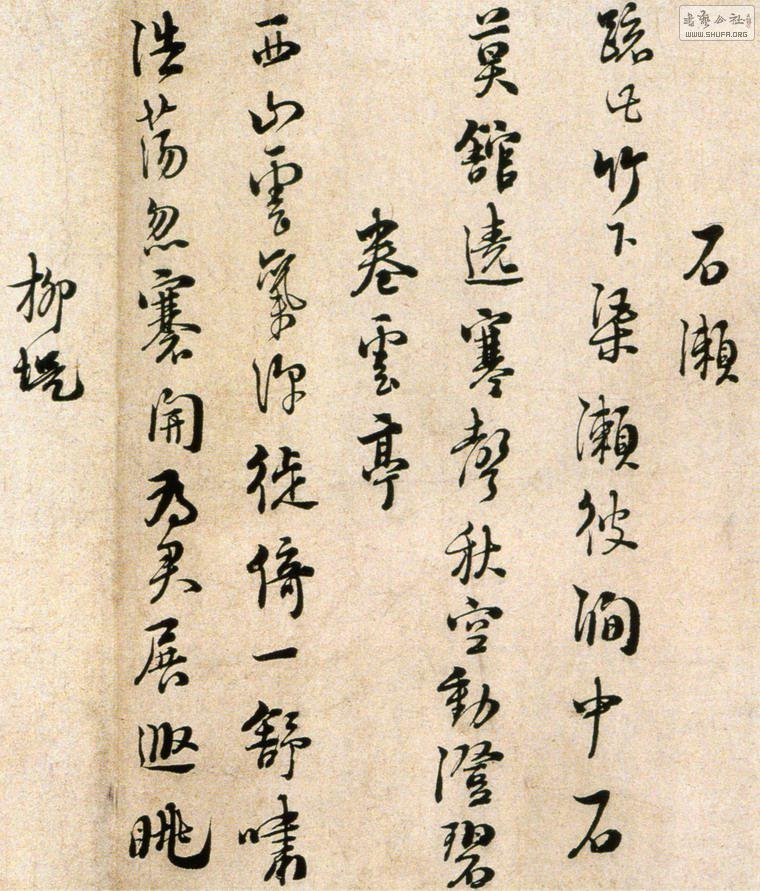 石瀬
疏此竹下渠瀬彼澗中石
莫館遶寒聲秋空動澄碧
卷雲亭
西山雲氣深徙倚一舒嘯
浩蕩忽褰開為君展遐眺
柳堤
書藝公社
WWW.SHUFA.ORG